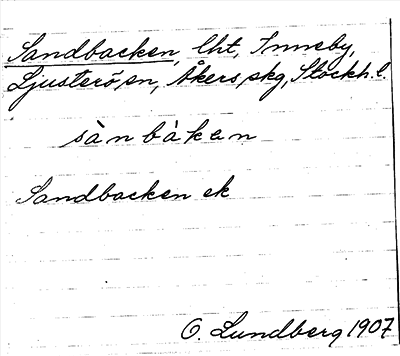 Sandbacken, lht, Inneby,
Ljusterö sn, Åkers skg, Stockh. l.
sànbàken
Sandbacken ek
O. Lundberg 1907